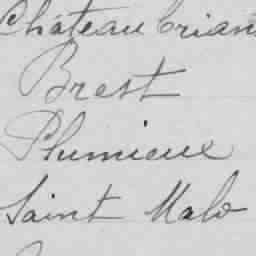 Châteaubrian
Brest
Plumieux
Saint Malo